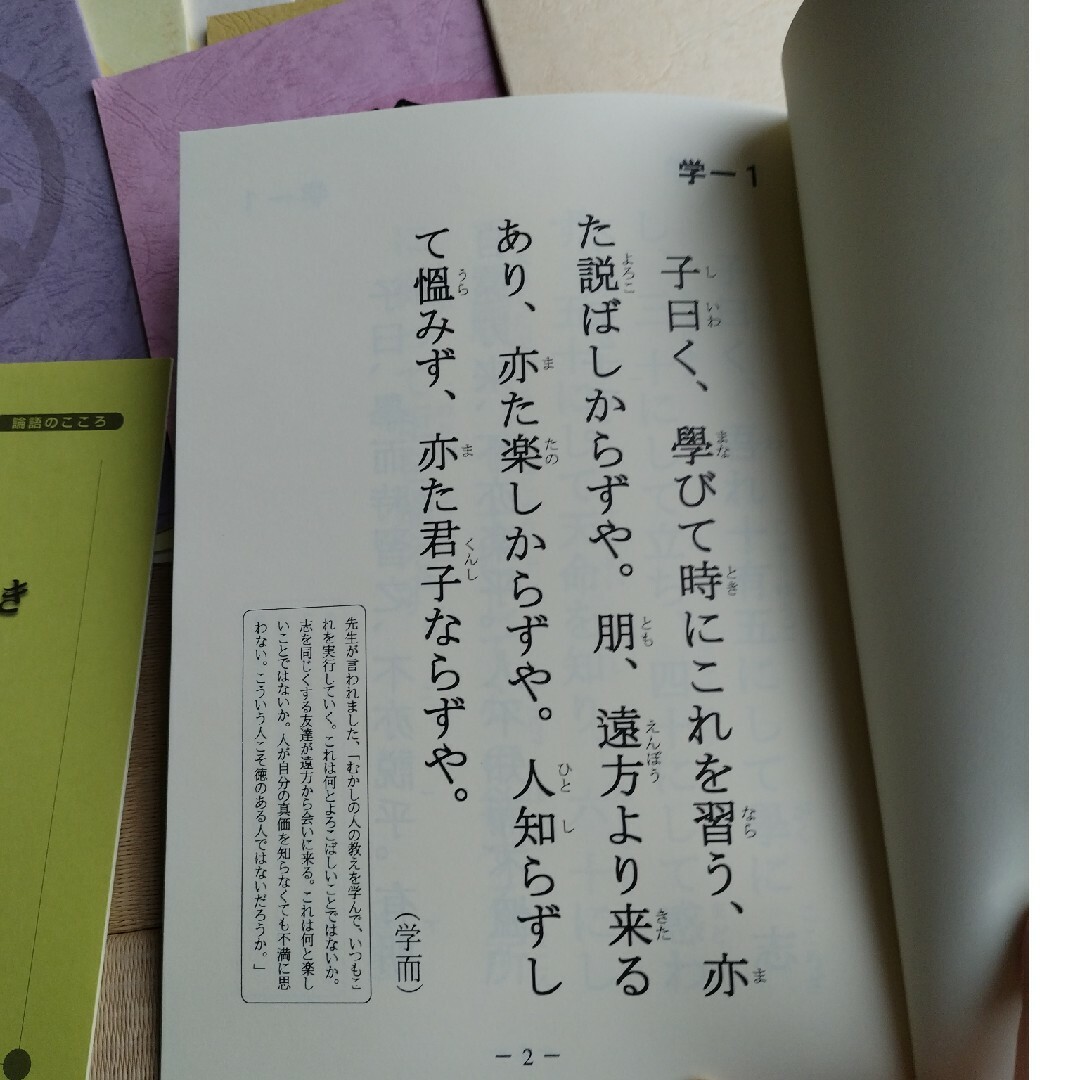 学ー1
子曰く、學びて時にこれを習う、亦
た説ばしからずや。朋、遠方より来る
あり、亦た楽しからずや。人知らずし
て慍みず、亦た君子ならずや。
(学而)
先生が言われました、「むかしの人の教えを学んで、いつもこ
れを実行していく。これは何とよろこばしいことではないか。
志を同じくする友達が遠方から会いに来る。これは何と楽し
いことではないか。人が自分の真価を知らなくても不満に思
わない。こういう人こそ徳のある人ではないだろうか。」
— 2 —
論語のこころ
き